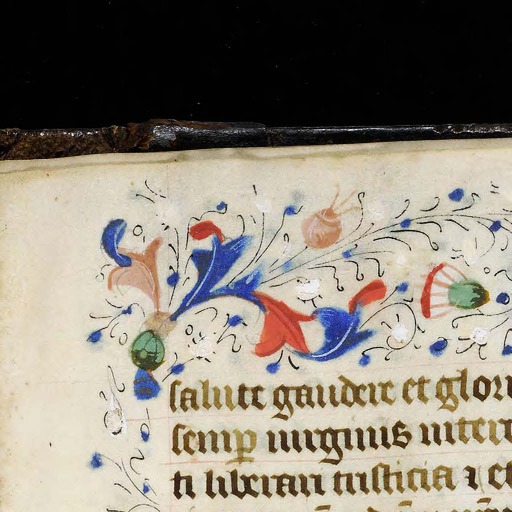 salute gaudere et glori
semp virginis interc
ti liberari tristicia ⁊ et